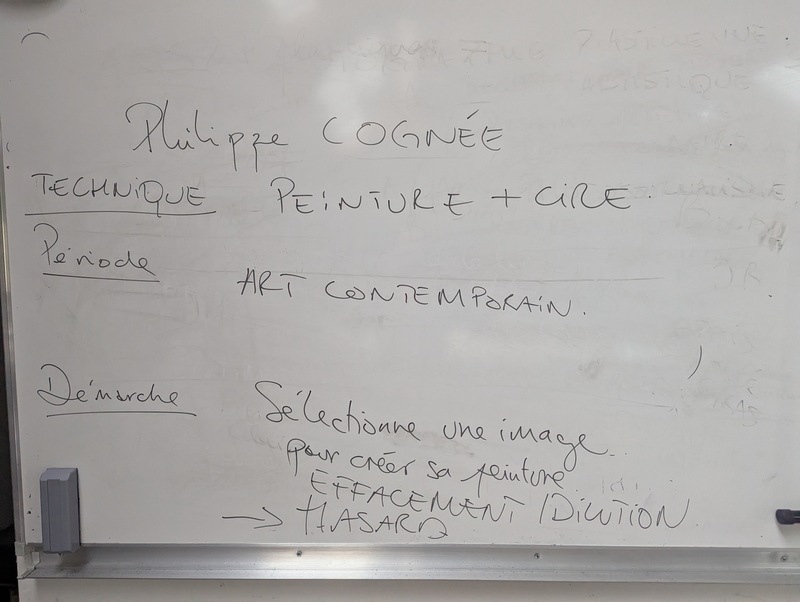 Philippe COGNÉE
TECHNIQUE PEINTURE + CIRE.
Période
ART CONTEMPORAIN.
Démarche Sélectionne une image
pour créer sa peinture
EFFACEMENT / DILUTION
→ HASARD